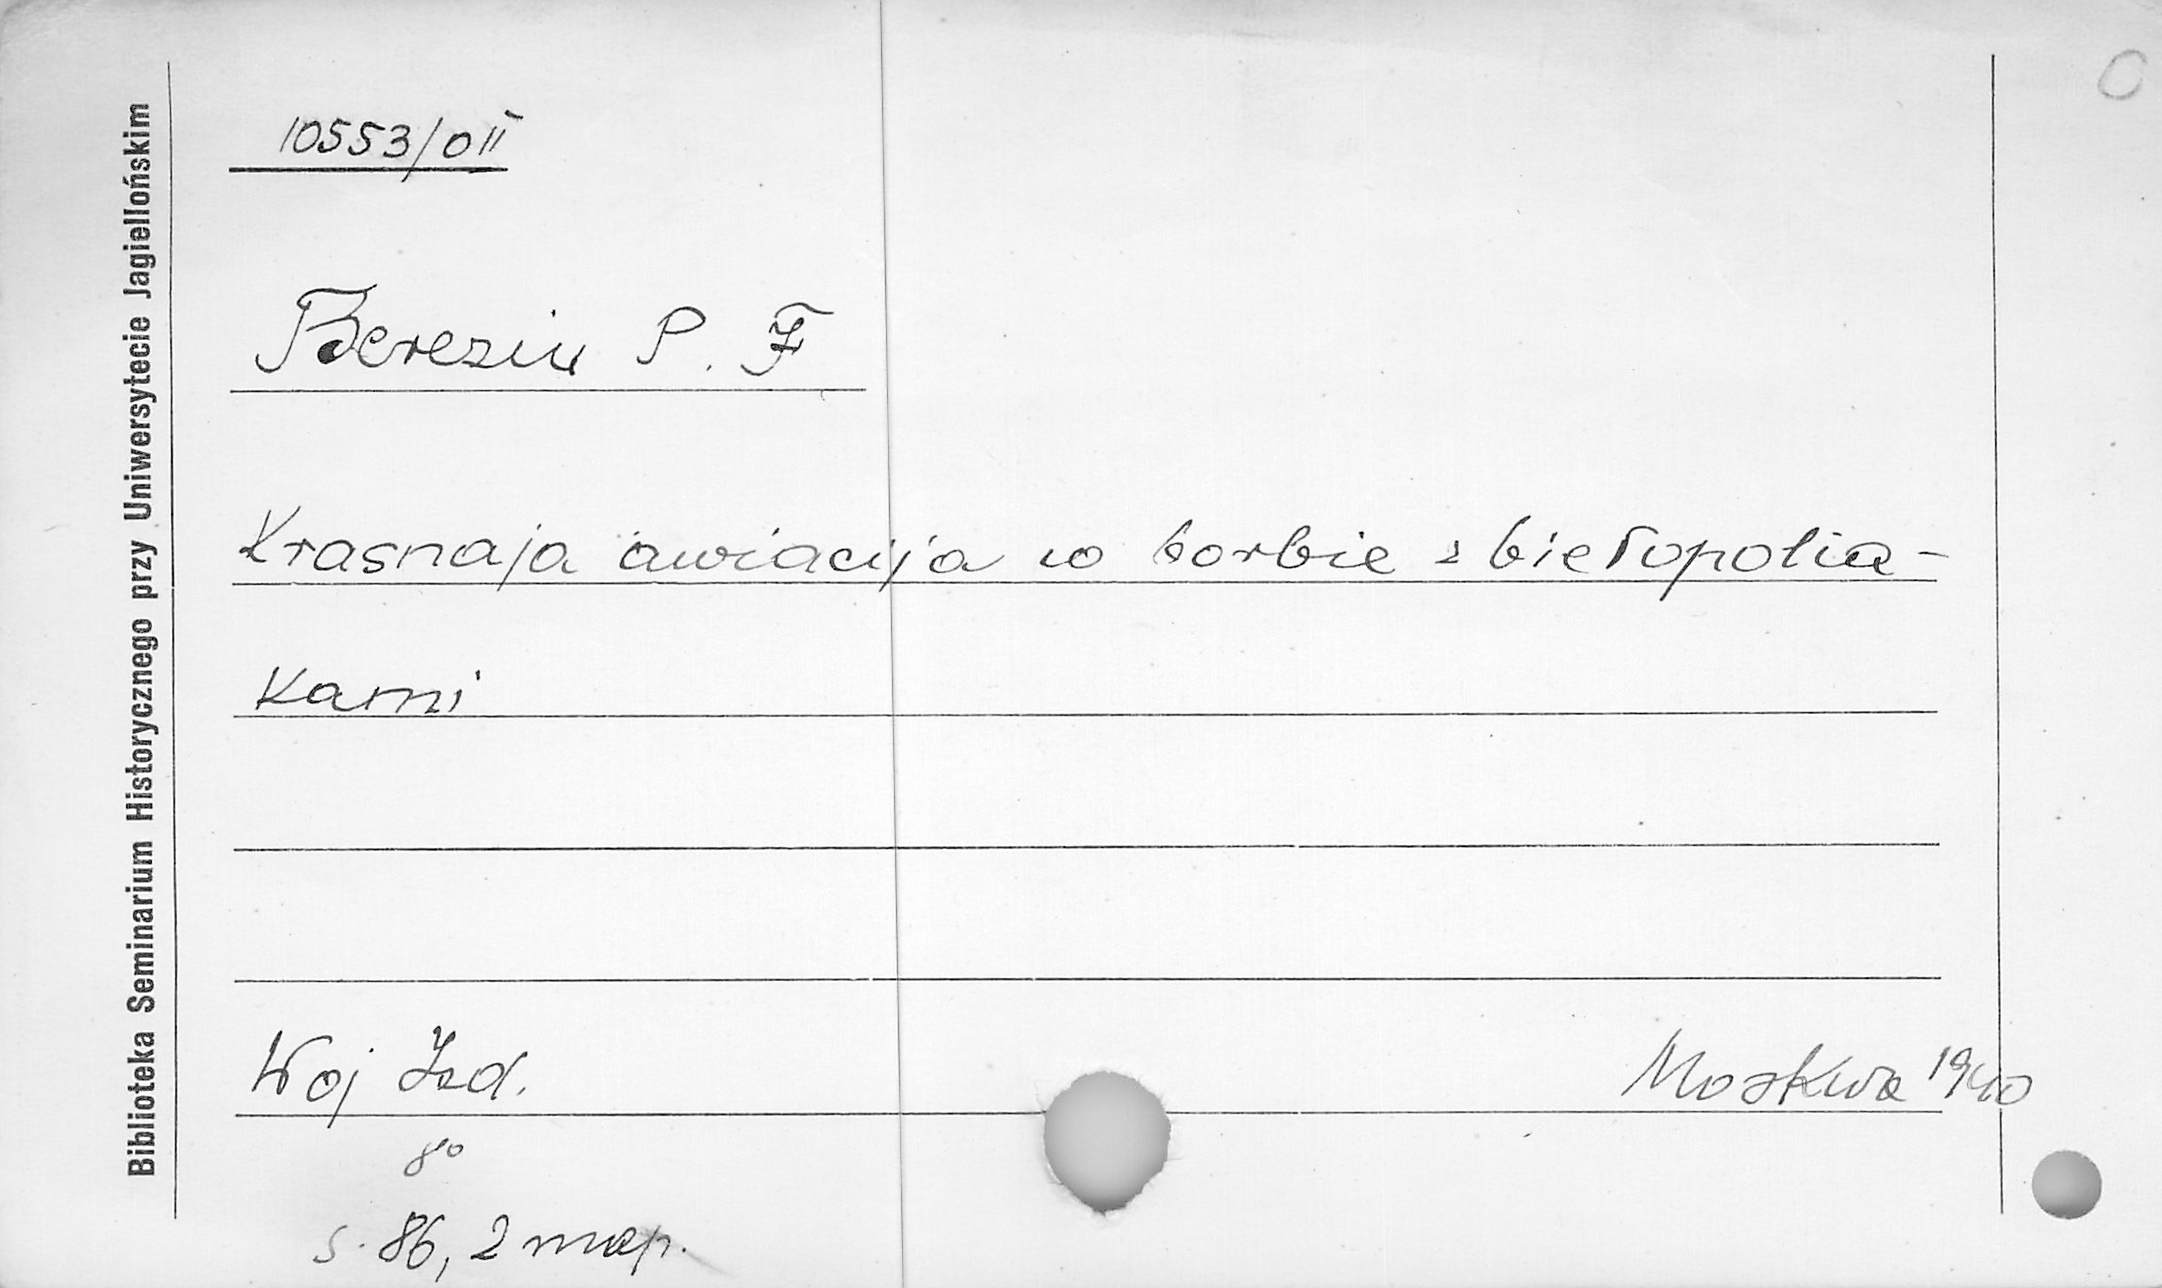 O
10553/0 II
Berezin P. F
Krasnaja awiacija w borbie z biełopolia-
kami
Woj Izd. Moskwa 1940
8°
s. 86, 2 map.
Biblioteka Seminarium Historycznego przy Uniwersytecie Jagiellońskim